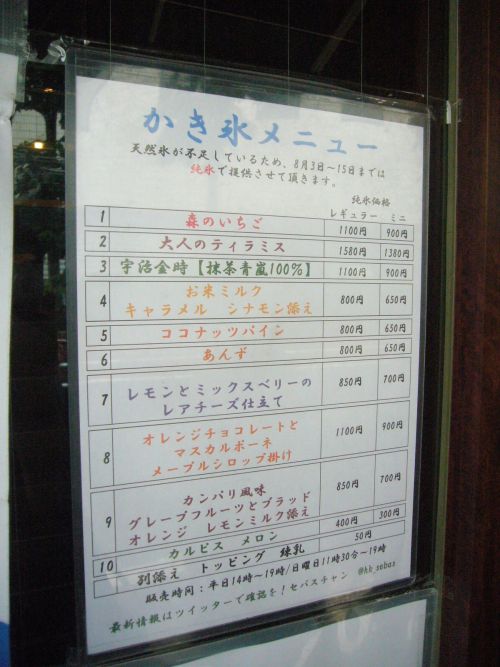 かき氷メニュー
天然氷が不足しているため、8月3日～15日までは
純氷で提供させて頂きます。
純氷価格
レギュラー ミニ
1 森のいちご 1100円 900円
2 大人のティラミス 1580円 1380円
3 宇治金時【抹茶青嵐100%】 1100円 900円
4 お米ミルク
キャラメル シナモン添え 800円 650円
5 ココナッツパイン 800円 650円
6 あんず 800円 650円
7 レモンとミックスベリーの
レアチーズ仕立て 850円 700円
8 オレンジチョコレートと
マスカルポーネ
メープルシロップ掛け 1100円 900円
9 カンパリ風味
グレープフルーツとブラッド
オレンジ レモンミルク添え 850円 700円
10 カルピス メロン 400円 300円
別添え トッピング 練乳 50円
販売時間：平日14時～19時/日曜日11時30分～19時
最新情報はツイッターで確認を！セバスチャン @hk_sebas